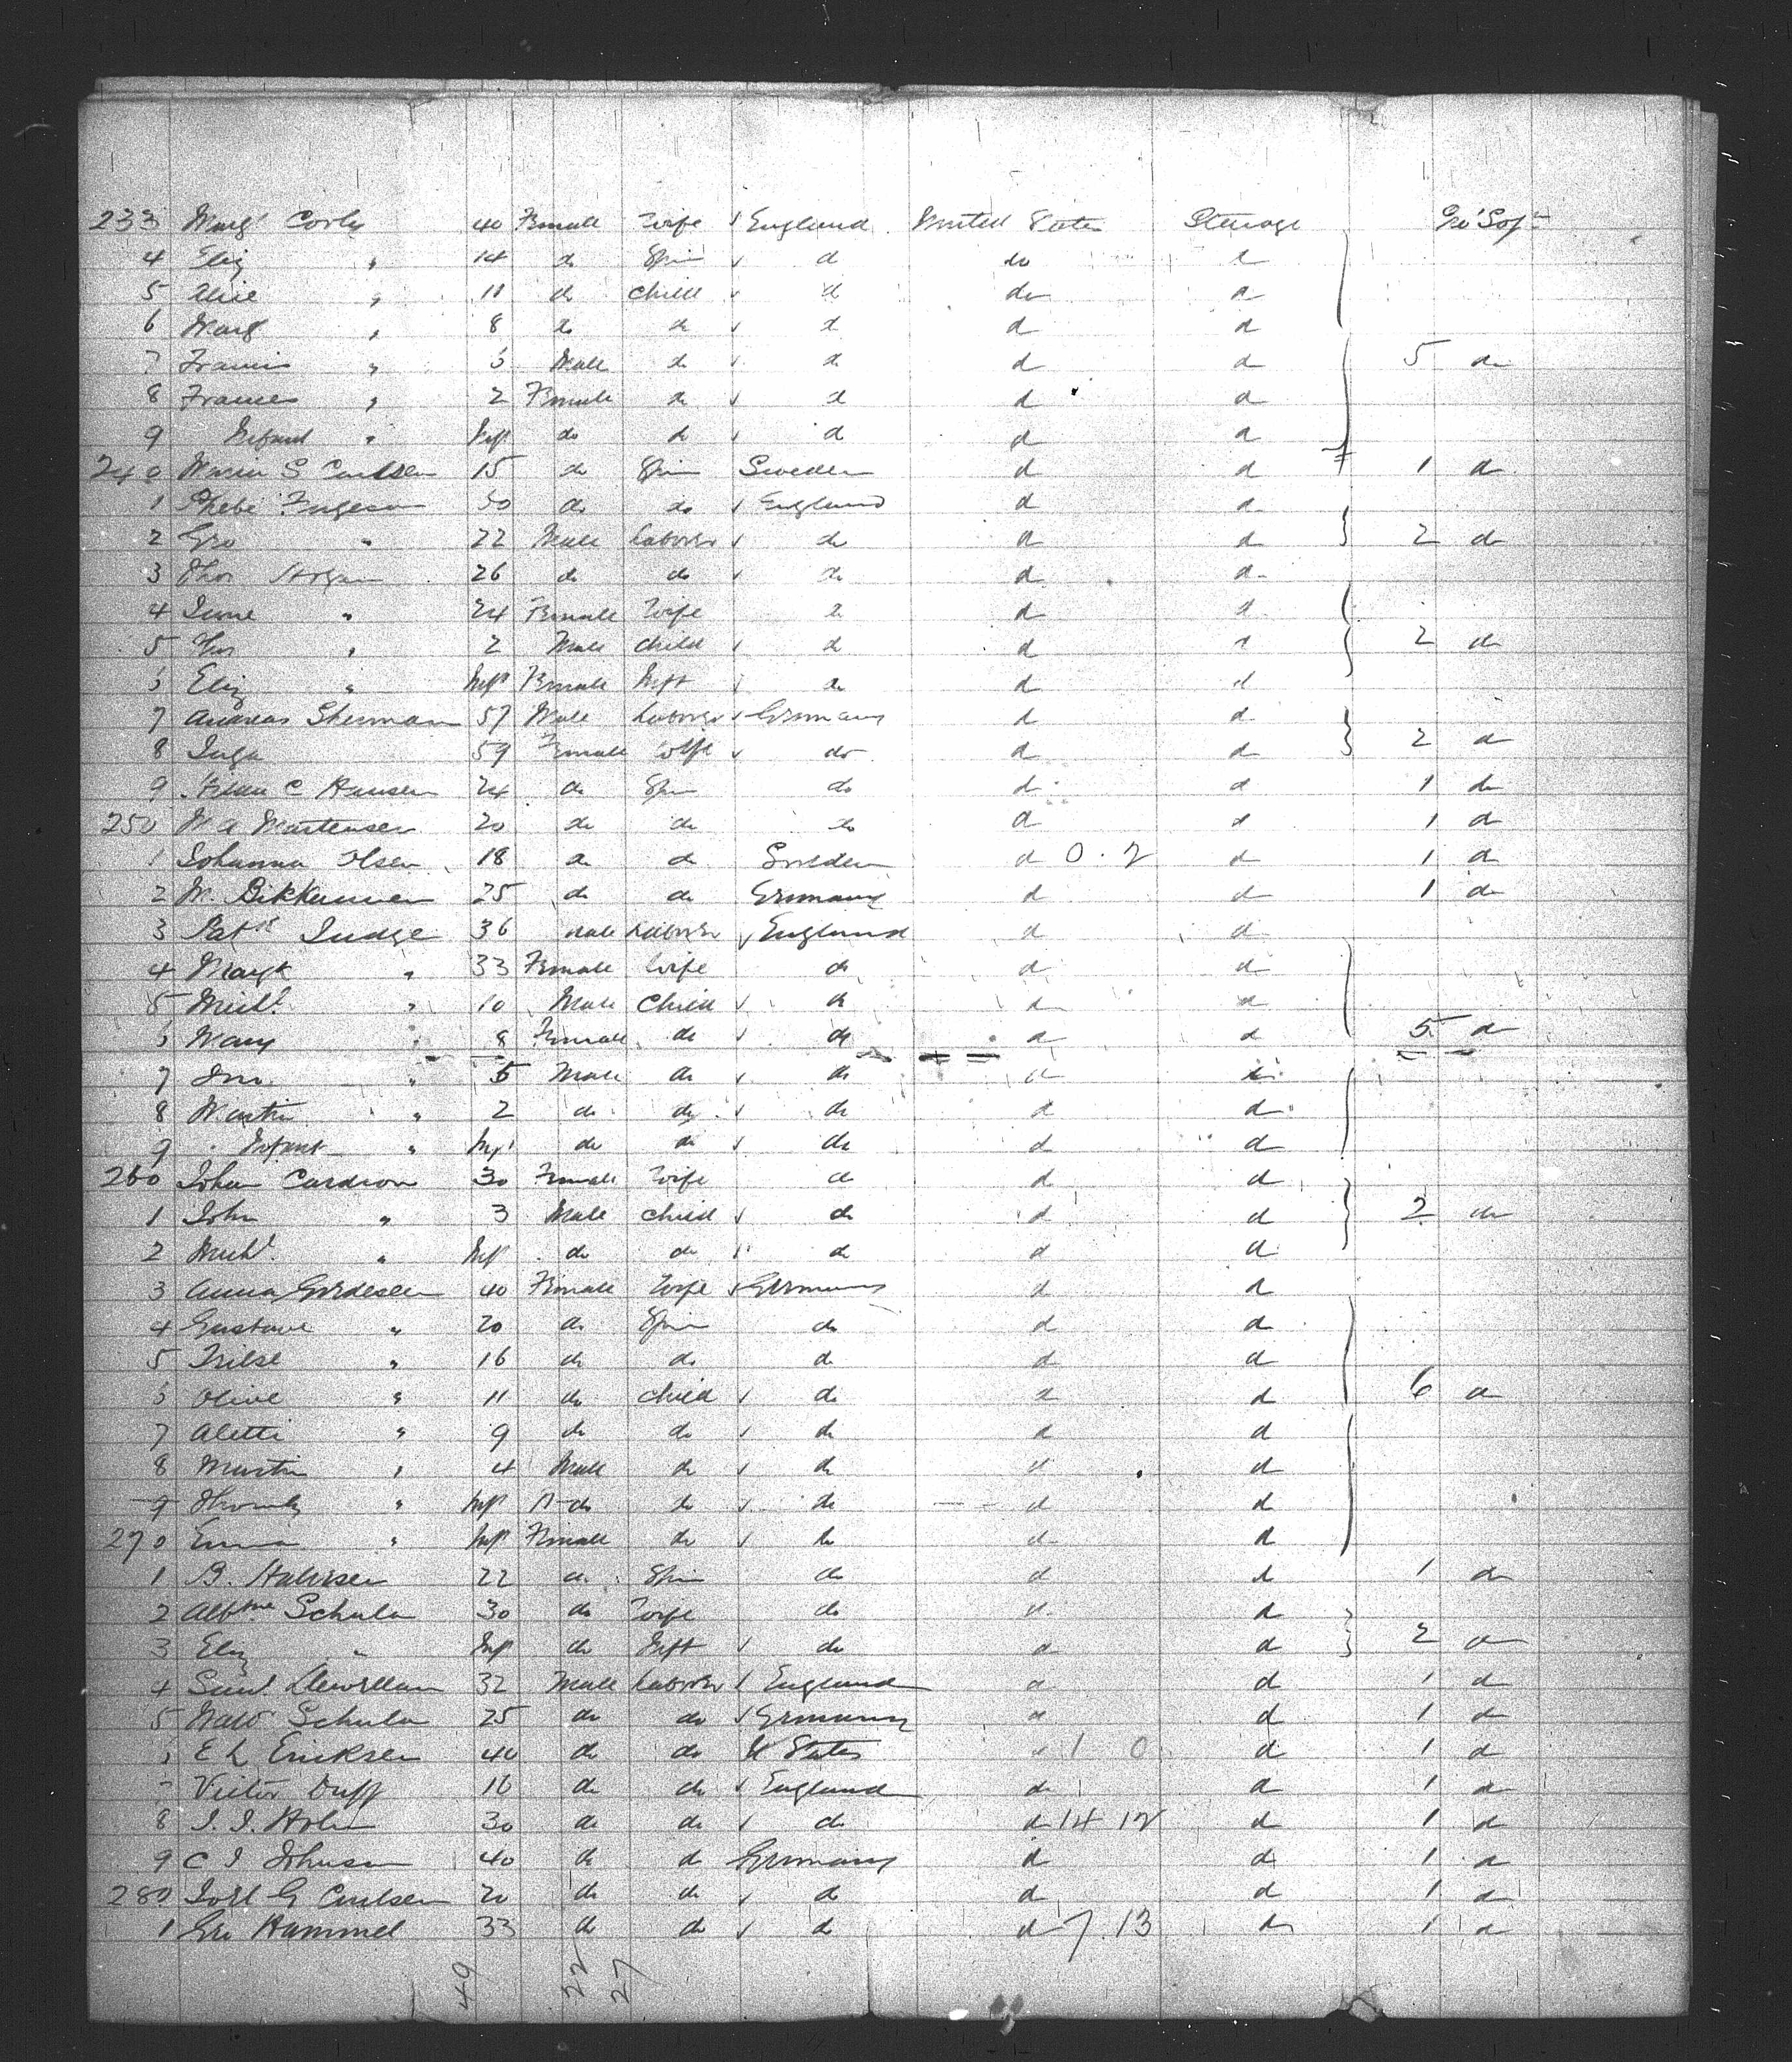 233 Marg^t Corly 40 Female Wife √ England United States Steerage Gro' Sop^n
4 Eliz " 14 do Spin √ d do d
5 Alice " 11 do Child √ d do d
6 Marg " 8 do do √ d d d
7 Francis " 5 Male do √ do d d 5 do
8 Frances " 2 Female do √ d d d
9 Infant " Inft do do √ d d d
240 Maria S Carlsen 15 do Spin Sweden d d 1 d
1 Phebe 50 do do √ England d d
2 Geo " 22 Male Laborer √ do d d 2 do
3 Thos Hogan 26 do do √ do d d
4 Jane " 24 Female Wife do d d
5 " 2 Male Child √ do d d 2 do
6 Eliz " Inft Female Inft √ do d d
7 Andreas Sherman 57 Male Laborer √ Germany d d
8 Inga 59 Female Wife √ do d d 2 d
9 C Hansen 24 do Spin do d d 1 do
250 M A Martensen 20 do do do d d 1 d
1 Johanna Olsen 18 do do Sweden d 0.2 d 1 d
2 M. 25 do do Germany d d 1 d
3 Pat^k Judge 36 Male Laborer √ England d d
4 " 33 Female Wife do d d
5 Mich^l " 10 Male Child √ do d d
6 Mary " 8 Female do √ do d d 5 d
7 Jno. " 5 Male do √ do d d
8 Martin " 2 do do √ do d d
9 Infant " Inft do do √ do d d
260 Cardron 30 Female Wife d d d
1 John " 3 Male Child √ do d d 2 do
2 Mich^l " Inft do do √ do d d
3 Anna Gordesen 40 Female Wife √ Germany d d
4 Gustave " 20 do Spin do d d
5 " 16 do do do d d
6 Olive " 11 do Child √ do d d 6 d
7 Aletti " 9 do do √ do d d
8 Martin " 4 Male do √ do d d
9 " Inft do do √ do d d
270 Emma " Inft Female do √ do d d
1 B. Halvrsen 22 do Spin do d d 1 do
2 Alb^ine Schula 30 do Wife do d d
3 Eliz " Inft do Inft √ do d d 2 d
4 Saml. Llewellan 32 Male Laborer √ England d d 1 d
5 Schula 25 do do √ Germany d d 1 d
6 E L Ericksen 40 do do U States d 1 0 d 1 d
7 Victor Duff 16 do do √ England do d 1 d
8 J. J. Holm 30 do do √ do d 14 12 d 1 d
9 C J Johnson 40 do d Germany d d 1 d
280 G Carlsen 20 do do √ d d d 1 d
1 Geo Hammel 33 do do √ do d 7.13 d 1 d
49 22 27